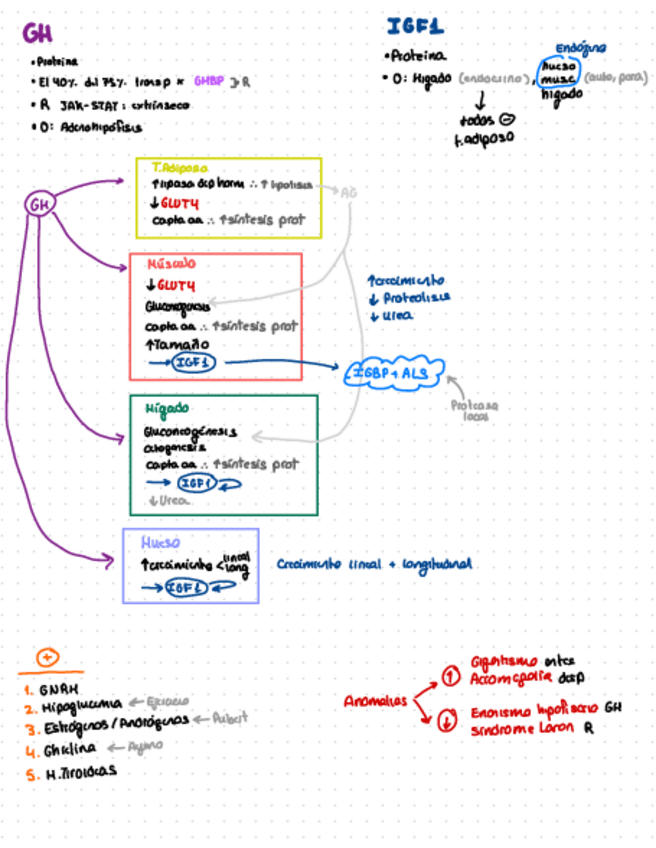 GH
• Proteina
• El 40% del 75% transp x GHBP } R
• R JAK-STAT: extrínseco
• O: Adenohipófisis
IGF1
• Proteina
• O: Higado (endocrino), hueso musc (auto, para)
Endógino
higado
todos ⊖
t.adiposo
GH
T.Adiposo
↑lipasa dep horm ∴ ↑lipolisis → AG
↓ GLUT4
capta aa ∴ ↑síntesis prot
Músculo
↓ GLUT4
Gluconogenesis
capta aa ∴ ↑síntesis prot
↑Tamaño
→ IGF1
↑crecimiento
↓ Proteolisis
↓ Urea
IGBP + ALS
Proteasa
locas
Hígado
Gluconeogénesis
cetogenesis
capta aa ∴ ↑síntesis prot
→ IGF1
↓ Urea
Hueso
↑crecimiento < lineal
long
→ IGF1
Crecimiento lineal + longitudinal
+
1. GNRH
2. Hipoglucemia ←
3. Estrógenos / Andrógenos ← Pubert
4. Ghrlina ← Ayuno
5. H.Tiroideas
Anomalias
↑ Gigantismo antes
Acromegalia desp
↓ Enanismo hipofisario GH
síndrome Laron R